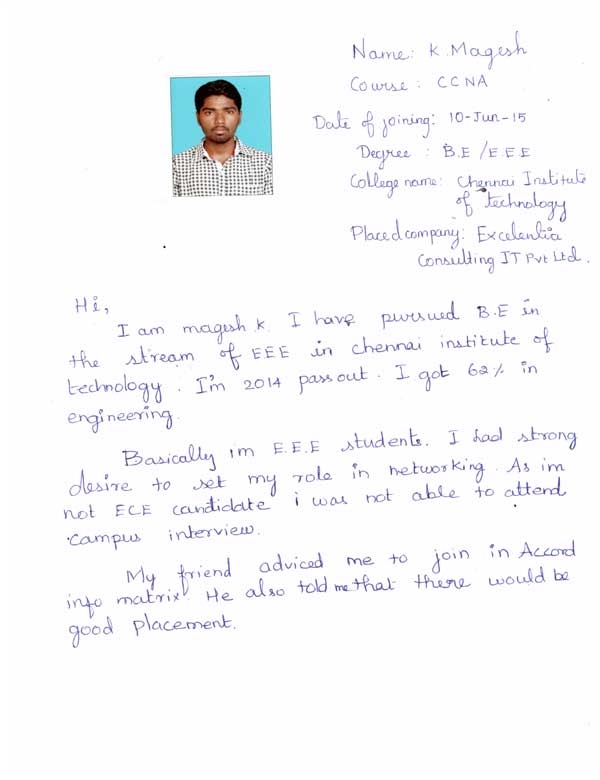 Name: K. Magesh
Course: CCNA
Date of joining: 10-Jun-15
Degree : B.E / E.E.E
College name: Chennai Institute
of technology
Placed company: Excelentia
Consulting IT Pvt Ltd.
Hi,
I am magesh.k. I have pursued B.E in
the stream of EEE in chennai institute of
technology. I'm 2014 pass out. I got 62% in
engineering.
Basically im E.E.E students. I had strong
desire to set my role in networking. As im
not ECE candidate i was not able to attend
campus interview.
My friend adviced me to join in Accord
info matrix. He also told me that there would be
good placement.